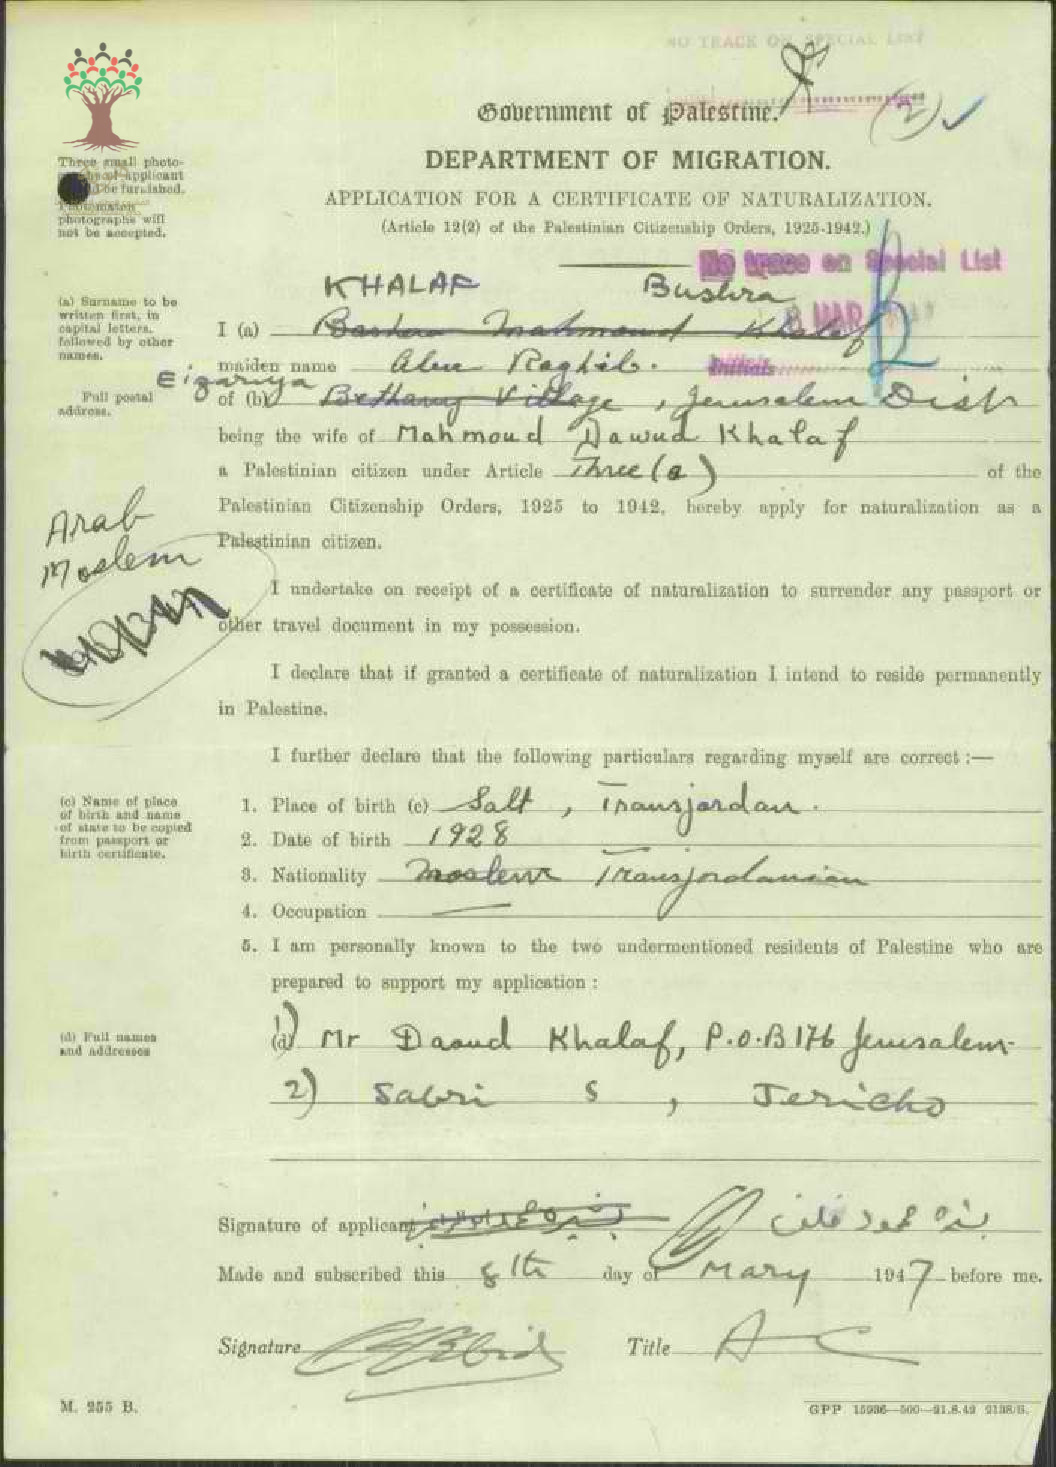 NO TRACK ON SPECIAL LIST
(2)
Government of Palestine.
DEPARTMENT OF MIGRATION.
APPLICATION FOR A CERTIFICATE OF NATURALIZATION.
(Article 12(2) of the Palestinian Citizenship Orders, 1925-1942.)
Three small photo-
graphs of applicant
be furnished.
photographs will
not be accepted.
No trace on Special List
MAR
Initials
KHALAF Bushra
(a) Surname to be
written first, in
capital letters,
followed by other
names.
I (a) Mahmoud Khalaf
maiden name Abu Raghib.
Eizariya
Full postal
address.
of (b) Bethany Village, Jerusalem Dist
being the wife of Mahmoud Dawud Khalaf
a Palestinian citizen under Article Three (a) of the
Palestinian Citizenship Orders, 1925 to 1942, hereby apply for naturalization as a
Palestinian citizen.
Arab
Moslem
I undertake on receipt of a certificate of naturalization to surrender any passport or
other travel document in my possession.
I declare that if granted a certificate of naturalization I intend to reside permanently
in Palestine.
I further declare that the following particulars regarding myself are correct :—
(c) Name of place
of birth and name
of state to be copied
from passport or
birth certificate.
1. Place of birth (c) Salt, Transjordan.
2. Date of birth 1928
3. Nationality Moslem Transjordanian
4. Occupation —
5. I am personally known to the two undermentioned residents of Palestine who are
prepared to support my application :
(d) Full names
and addresses
1) (d) Mr Daoud Khalaf, P.O.B 176 Jerusalem.
2) Sabri S, Jericho
Signature of applicant بشره محمود خلف
Made and subscribed this 8th day of Mary 1947 before me.
Signature Title A C
M. 255 B.
GPP 15936—500—21.8.42 2138/S.